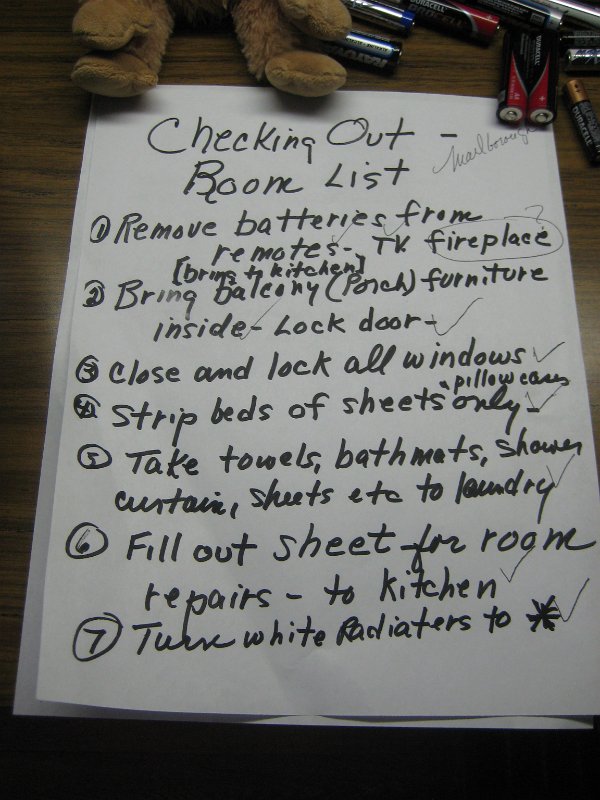 DURACELL
DURACELL
DURACELL
DURACELL
Checking Out -
Room List
Marlborough
① Remove batteries from
remotes- TV fireplace ?
[bring to kitchen]
② Bring balcony (Porch) furniture
inside- Lock door-
③ Close and lock all windows
④ Strip beds of sheets + pillow cases only-
⑤ Take towels, bathmats, shower
curtain, sheets etc to laundry
⑥ Fill out sheet for room
repairs - to kitchen
⑦ Turn white Radiaters to *